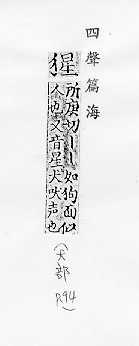 四聲篇海
猩
所庚切｜｜如狗面似
人也又音星犬吠声也
(犬部
P.94)